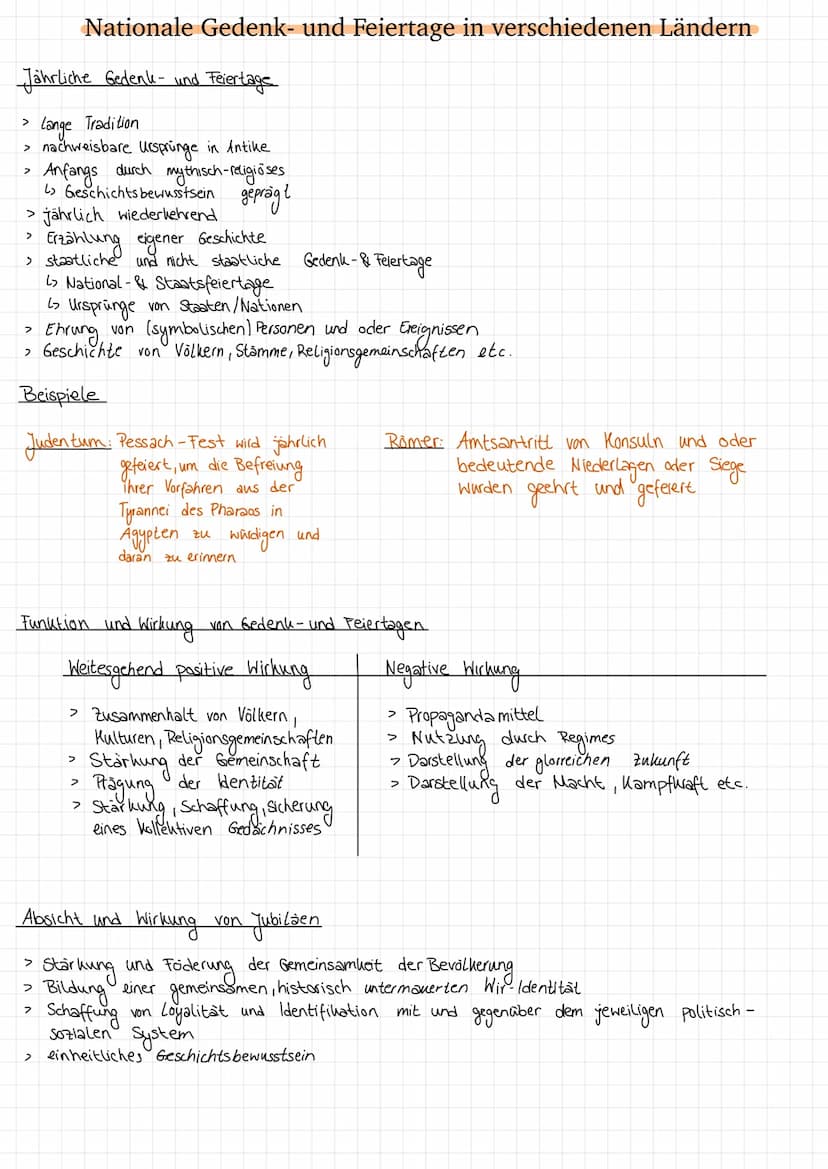 Nationale Gedenk- und Feiertage in verschiedenen Ländern
Jährliche Gedenk- und Feiertage
> lange Tradition
> nachweisbare Ursprünge in Antike
> Anfangs durch mythisch-religiöses
↳ Geschichtsbewusstsein geprägt
> jährlich wiederkehrend
> Erzählung eigener Geschichte
> staatliche und nicht staatliche Gedenk-& Feiertage
↳ National-& Staatsfeiertage
↳ Ursprünge von Staaten/Nationen
> Ehrung von (symbolischen) Personen und oder Ereignissen
> Geschichte von Völkern, Stämme, Religionsgemeinschaften etc.
Beispiele
Judentum: Pessach-Fest wird jährlich
gefeiert, um die Befreiung
ihrer Vorfahren aus der
Tyrannei des Pharaos in
Ägypten zu würdigen und
daran zu erinnern
Römer: Amtsantritt von Konsuln und oder
bedeutende Niederlagen oder Siege
wurden geehrt und gefeiert
Funktion und Wirkung von Gedenk- und Feiertagen
Weitesgehend positive Wirkung
> Zusammenhalt von Völkern,
Kulturen, Religionsgemeinschaften
> Stärkung der Gemeinschaft
> Prägung der Identität
> Stärkung, Schaffung, Sicherung
eines kollektiven Gedächnisses
Negative Wirkung
> Propagandamittel
> Nutzung durch Regimes
> Darstellung der glorreichen Zukunft
> Darstellung der Macht, Kampfkraft etc.
Absicht und Wirkung von Jubiläen
> Stärkung und Föderung der Gemeinsamkeit der Bevölkerung
> Bildung einer gemeinsamen, historisch untermauerten Wir-Identität
> Schaffung von Loyalität und Identifikation mit und gegenüber dem jeweiligen politisch-
sozialen System
> einheitliches Geschichtsbewusstsein